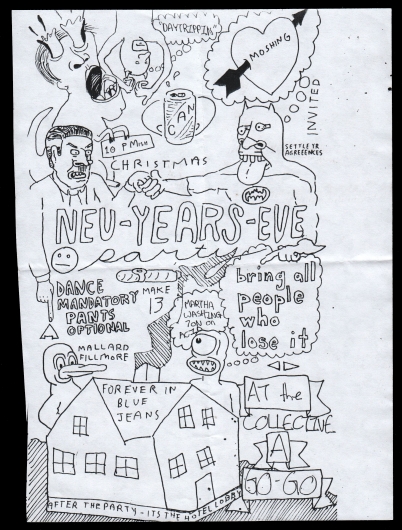 "DAYTRIPPIN"
MOSHING
INVITED
CAN
10 PMish
CHRISTMAS
SETTLE YR
AGREEENCES
NEU-YEARS-EVE
party
DANCE
MANDATORY
PANTS
OPTIONAL
MAKE
13
MARTHA
WASHING
TON ON
bring all
people
who
lose it
MALLARD
FILLMORE
FOREVER IN
BLUE
JEANS
AT the
COLLECTIVE
A
GO-GO
AFTER THE PARTY-ITS THE HOTEL LOBBY